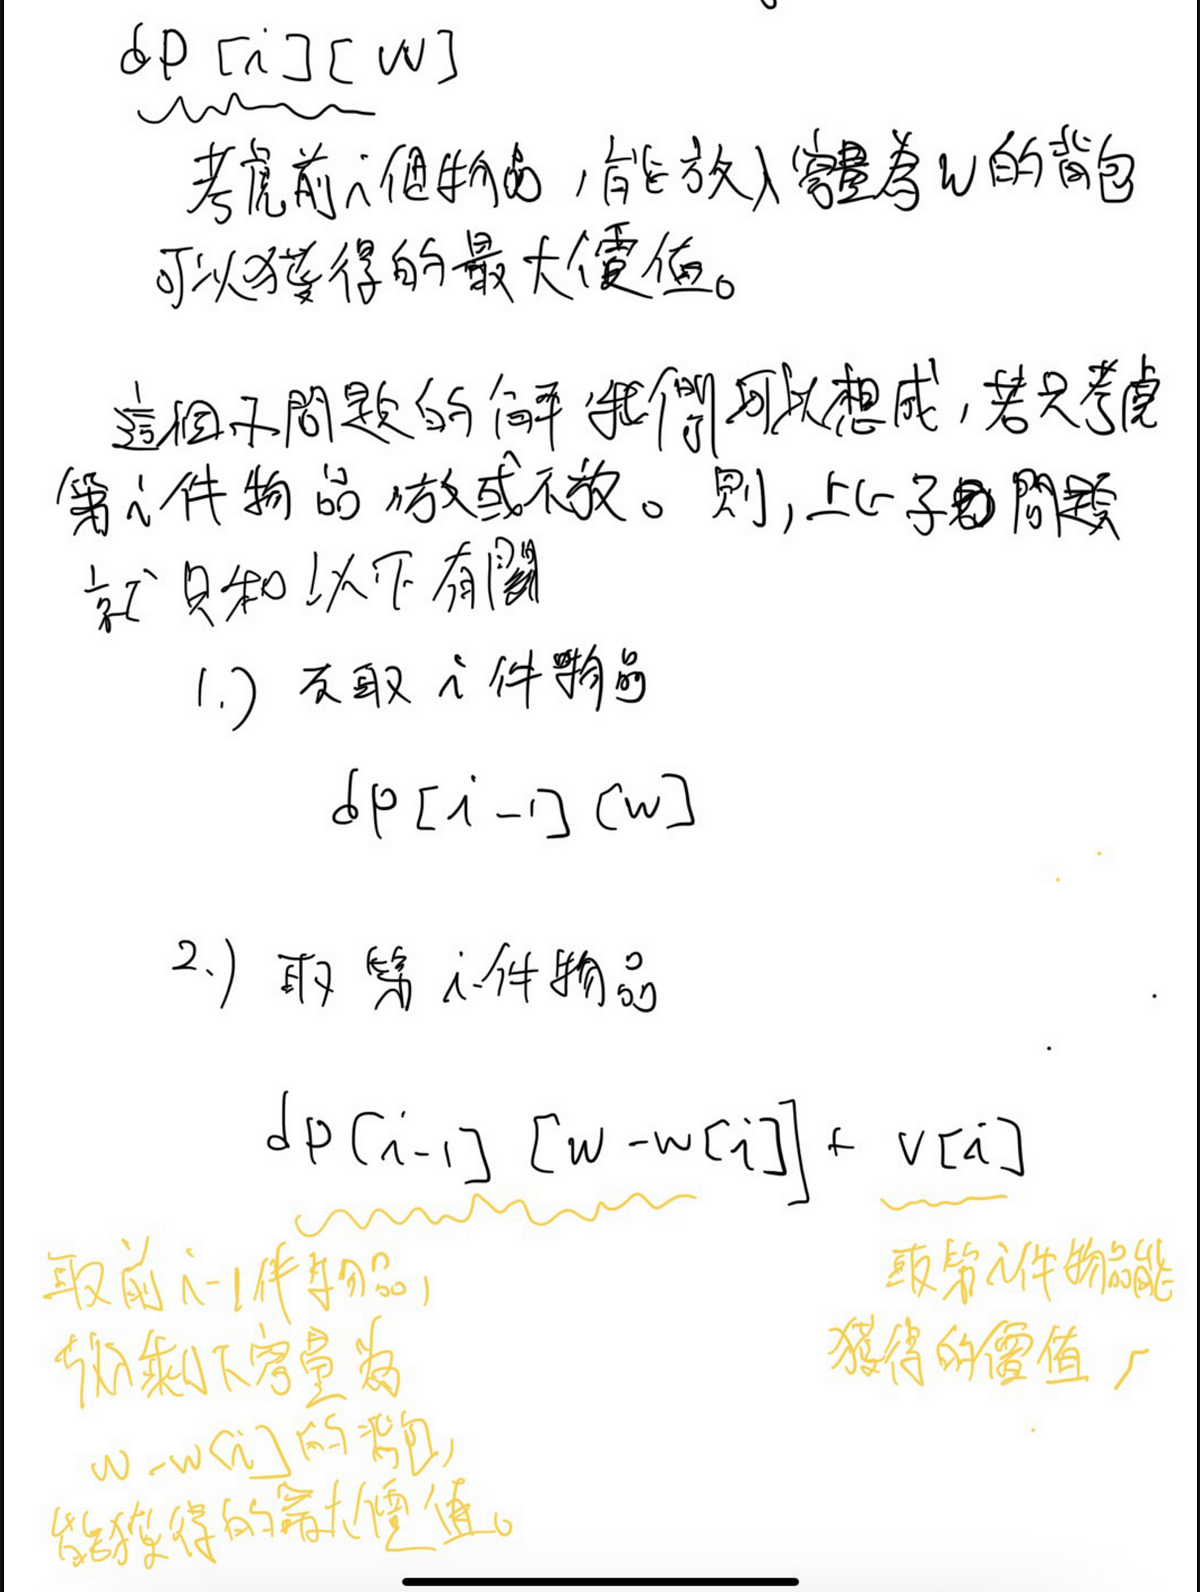 dp[i][w]
考慮前i個物品,能放入容量為w的背包
可以獲得的最大價值。
這個子問題的解,我們可以想成,若只考慮
第i件物品,放或不放。則,上個子問題
就只和以下有關
1.) 不取i件物品
dp[i-1][w]
2.) 取第i件物品
dp[i-1][w-w[i]] + v[i]
取前i-1件物品,
放入剩下容量為
w-w[i]的背包,
能獲得的最大價值。
取第i件物品能
獲得的價值,